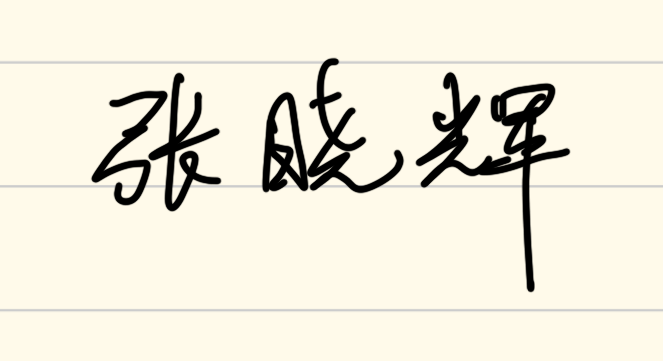 张晓辉